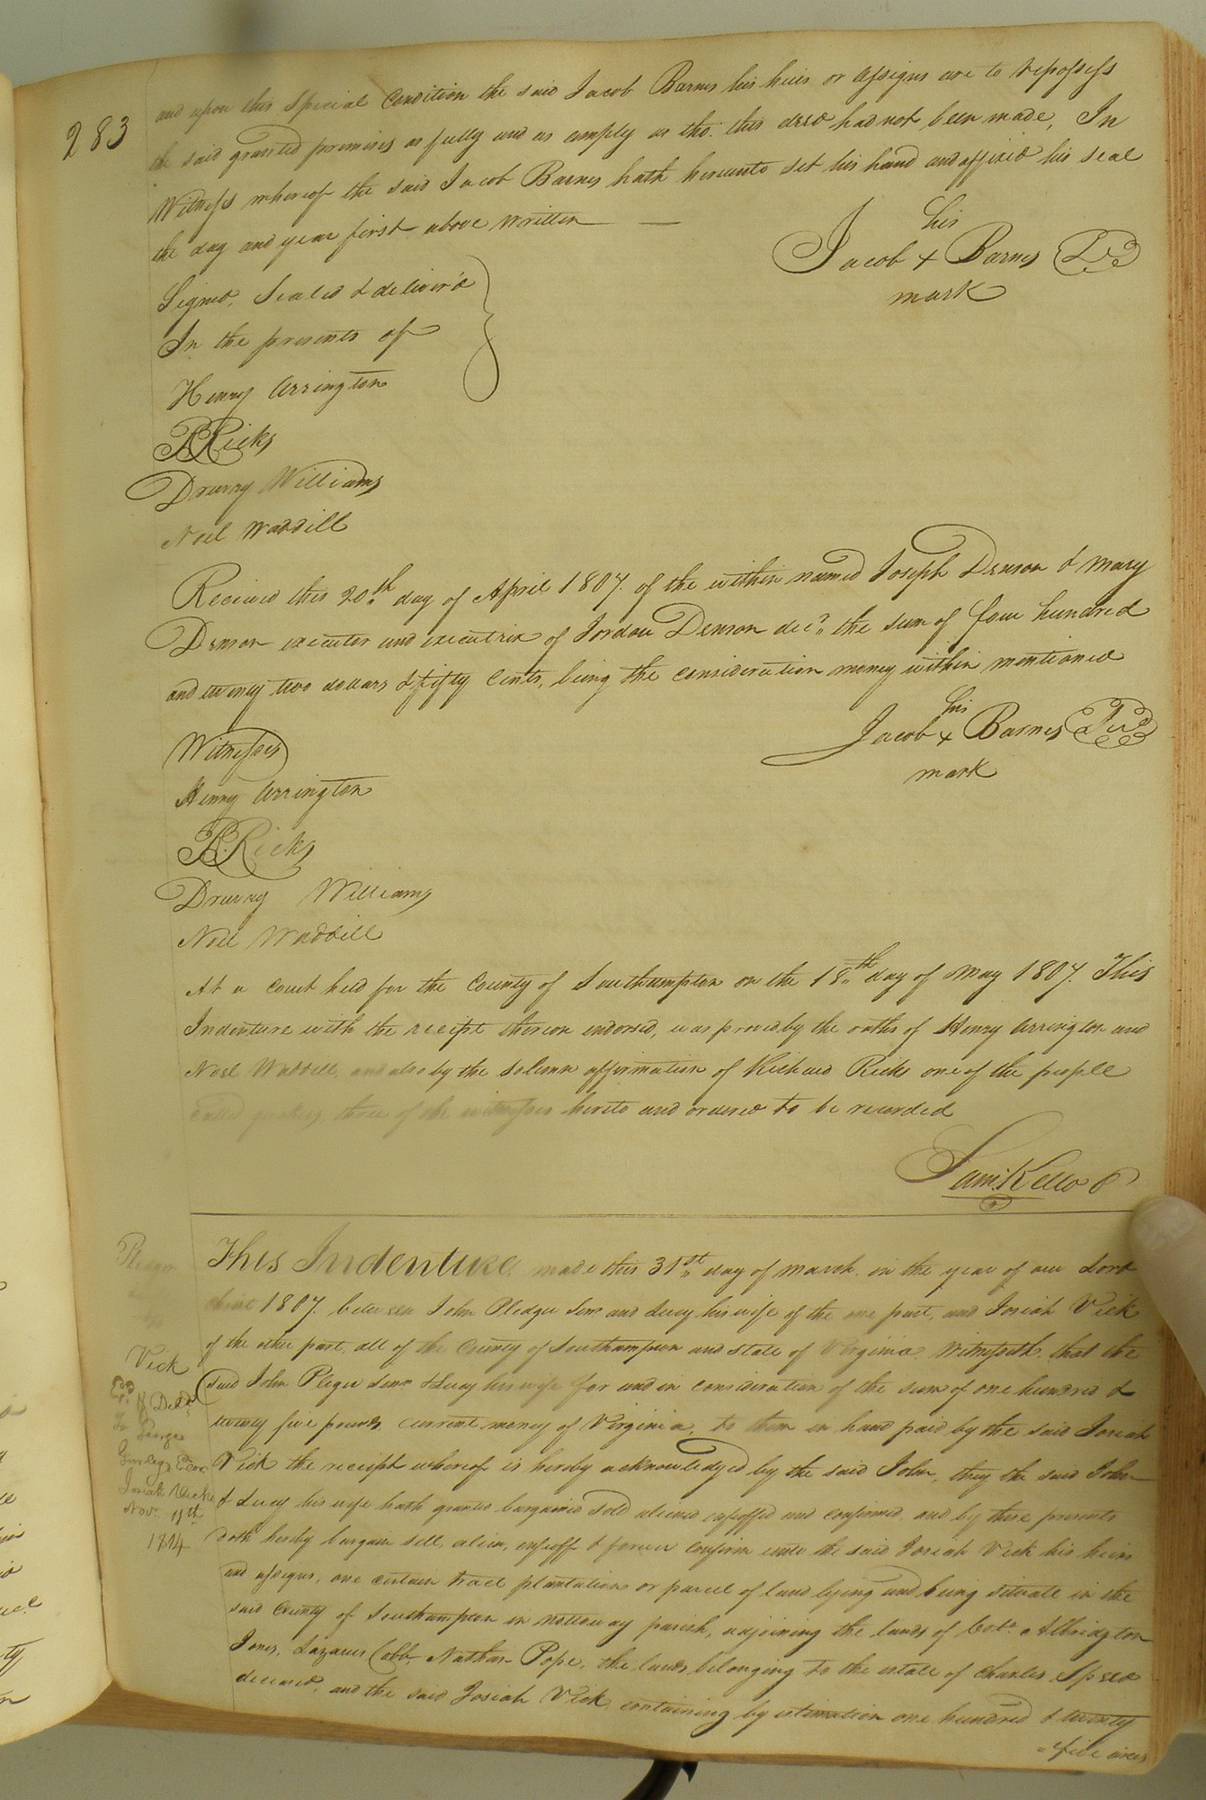 283
and upon this special Condition the said Jacob Barnes his heirs or assigns are to repossess
the said granted premises as fully and as amply as tho: this deed had not been made, In
Witness whereof the said Jacob Barnes hath hereunto set his hand and affixed his seal
the day and year first above written —
his
Jacob x Barnes
mark
Signed, Sealed & deliver'd
In the presents of
Henry Arrington
R Ricks
Drurry Williams
Noel Waddill
Received this 20th day of April 1807. of the within named Joseph Denson & Mary
Denson executor and executrix of Jordan Denson decd. the sum of four hundred
and twenty two dollars & fifty Cents, being the consideration money within mentioned
his
Jacob x Barnes
mark
Witnesses
Henry Arrington
R. Ricks
Drurry Williams
Noel Waddill
At a Court held for the County of Southampton on the 18th day of May 1807. This
Indenture with the receipt thereon endorsed, was proved by the oaths of Henry Arrington and
Noel Waddill, and also by the solemn affirmation of Richard Ricks one of the people
called quakers, three of the witnesses hereto and ordered to be recorded
Saml. Kello
This Indenture made this 31st. day of March in the year of our Lord
christ 1807. between John Pledger Senr. and Lucy his wife of the one part, and Josiah Vick
of the other part, all of the County of Southampton and state of Virginia Witnesseth, that the
said John Pleger Senr. & Lucy his wife for and in consideration of the sum of one hundred &
twenty five pounds, current money of Virginia, to them in hand paid by the said Josiah
Vick the receipt whereof is hereby acknowledged by the said John, they the said John
& Lucy his wife hath granted bargained sold aliened enfeoffed and confirmed, and by these presents
doth hereby bargain sell, alien, enfeoff & forever Confirm unto the said Josiah Vick his heirs
and assigns, one certain tract plantation or parcel of land lying and being situate in the
said County of Southampton in nottoway parish, adjoining the lands of Colo. Albridgton
Jones, Lazarus Cobb, Nathan Pope, the lands belonging to the estate of Charles Speed
deceased, and the said Josiah Vick, containing by estimation one hundred & twenty
=five acres
Pledger
Vick
Exd.
& Deld.
To George
Gurley Exor
Josiah Vick
Novr. 11th
1814